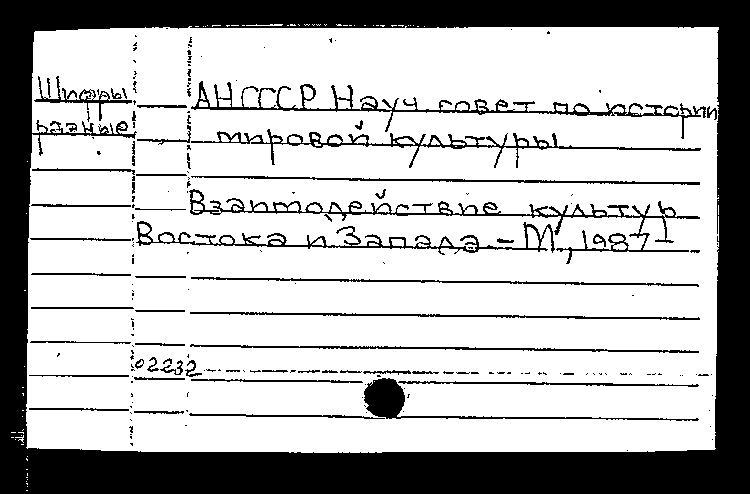 Шифры
разные
АН СССР Науч. совет по истории
мировой культуры.
Взаимодействие культур
Востока и Запада. – М., 1987 –
02232